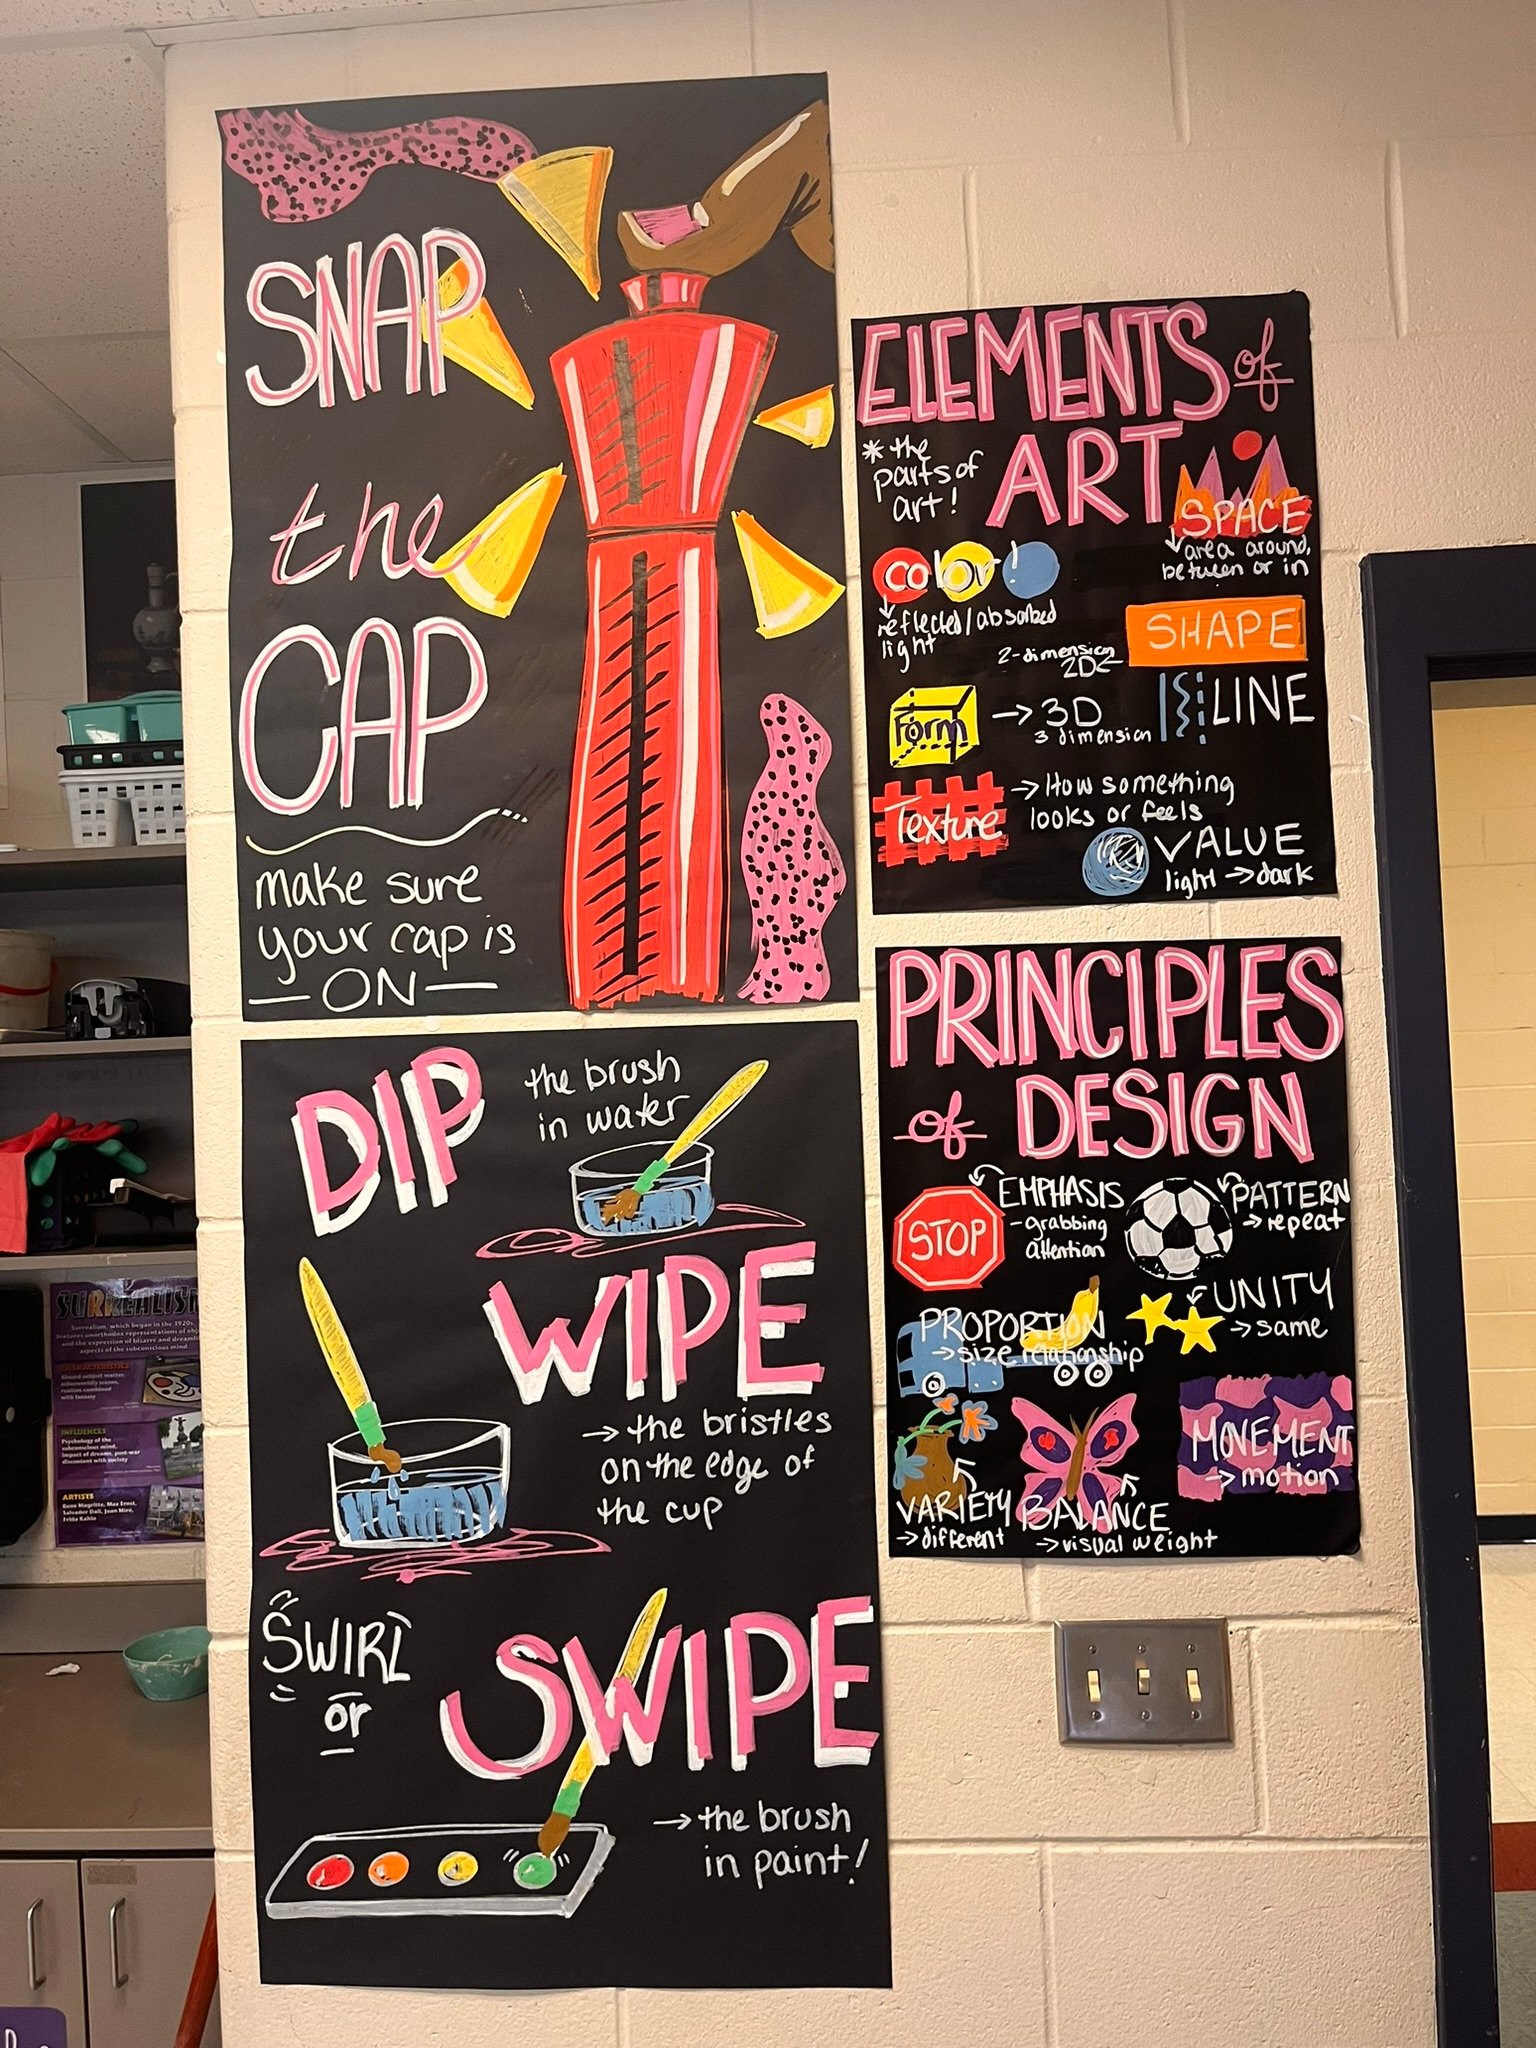 SNAP
the
CAP
make sure
your cap is
ON
DIP
the brush
in water
WIPE
→ the bristles
on the edge of
the cup
SWIRL
or
SWIPE
→ the brush
in paint!
ELEMENTS of
ART
* the
parts of
art!
SPACE
area around,
between or in
color
reflected/absorbed
light
SHAPE
2-dimension
2D
Form
→ 3D
3 dimension
LINE
Texture
→ How something
looks or feels
VALUE
light → dark
PRINCIPLES
of DESIGN
STOP
EMPHASIS
- grabbing
attention
PATTERN
→ repeat
PROPORTION
→ size relationship
UNITY
→ same
VARIETY
→ different
BALANCE
→ visual weight
MOVEMENT
→ motion
SURREALISM
Surrealism, which began in the 1920s,
features unorthodox representations of
and the expression of bizarre and
aspects of the subconscious mind.
CHARACTERISTICS
Absurd subject matter,
otherworldly scenes,
realism combined
with fantasy
INFLUENCES
Psychology of the
subconscious mind,
impact of dreams, post-war
discontent with society
ARTISTS
Rene Magritte, Max Ernst,
Salvador Dali, Joan Miró,
Frida Kahlo